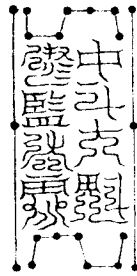 中斗大魁
總監眾靈